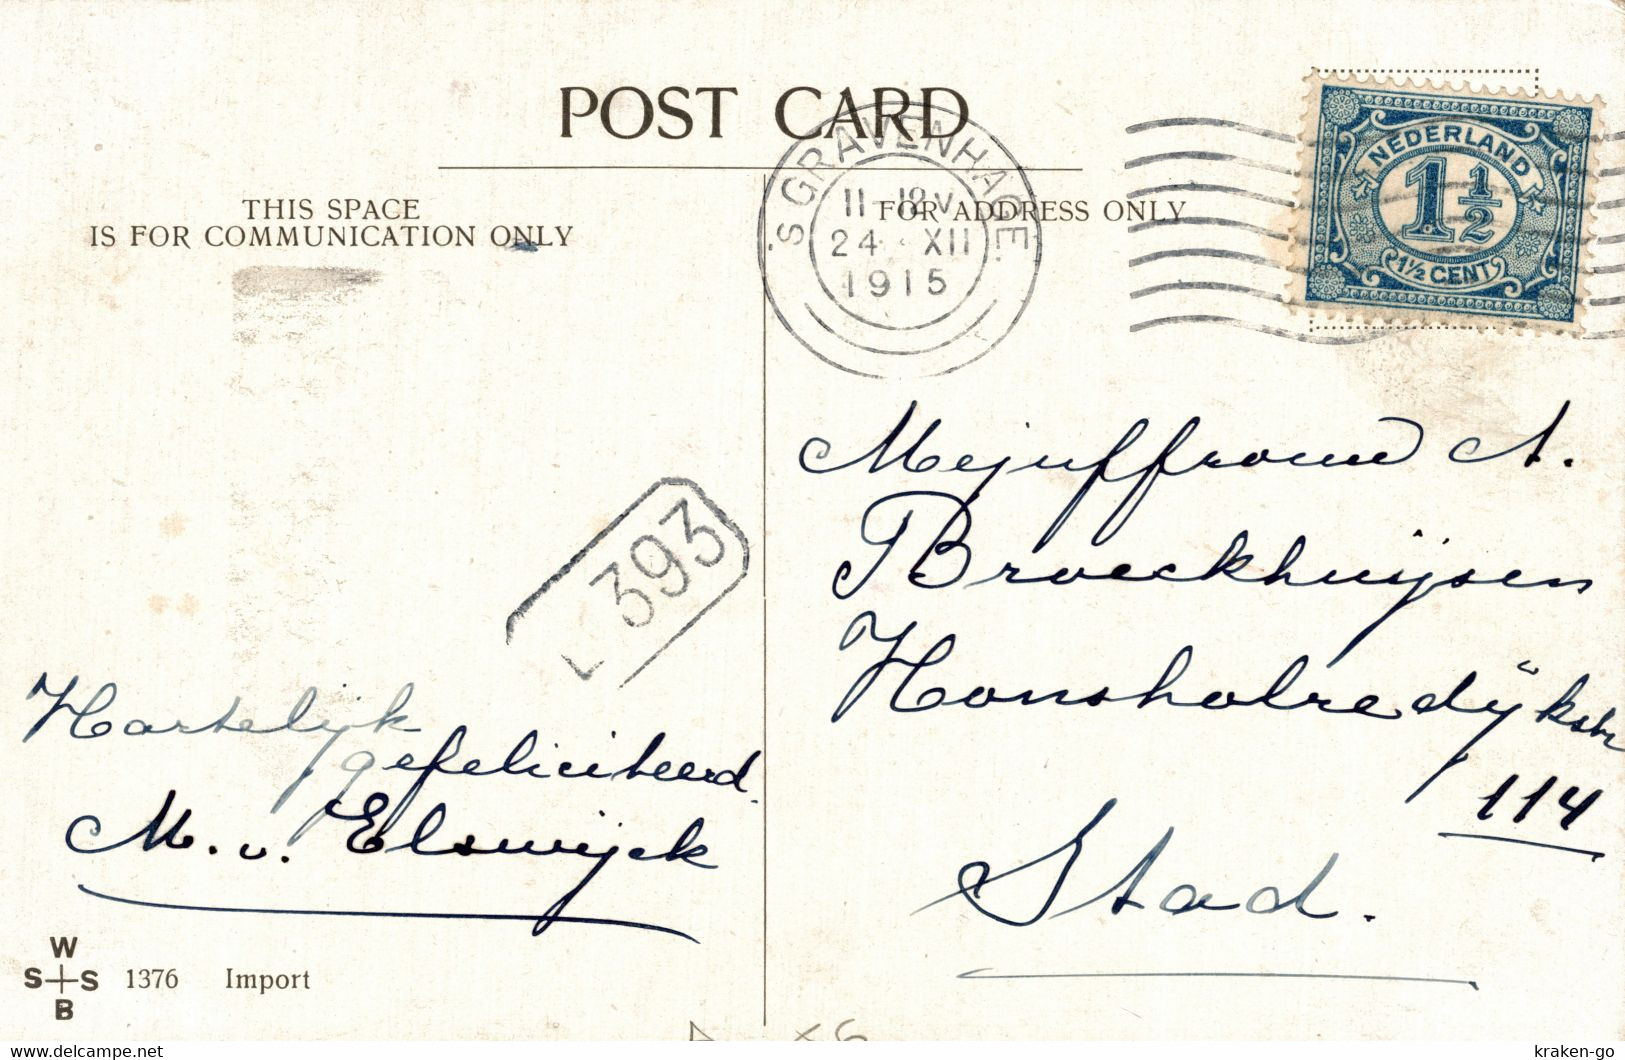 POST CARD
THIS SPACE
IS FOR COMMUNICATION ONLY
FOR ADDRESS ONLY
'S GRAVENHAGE.
11-12 V
24 XII
1915
NEDERLAND
1 1/2
1 1/2 CENT
Mejuffrouw A.
Broeckhuijsen
Honsholredijkstr
114
Stad.
393
Hartelijk
gefeliciteerd.
M. v. Elswijck
W
S S
B
1376 Import
delcampe.net
kraken-go